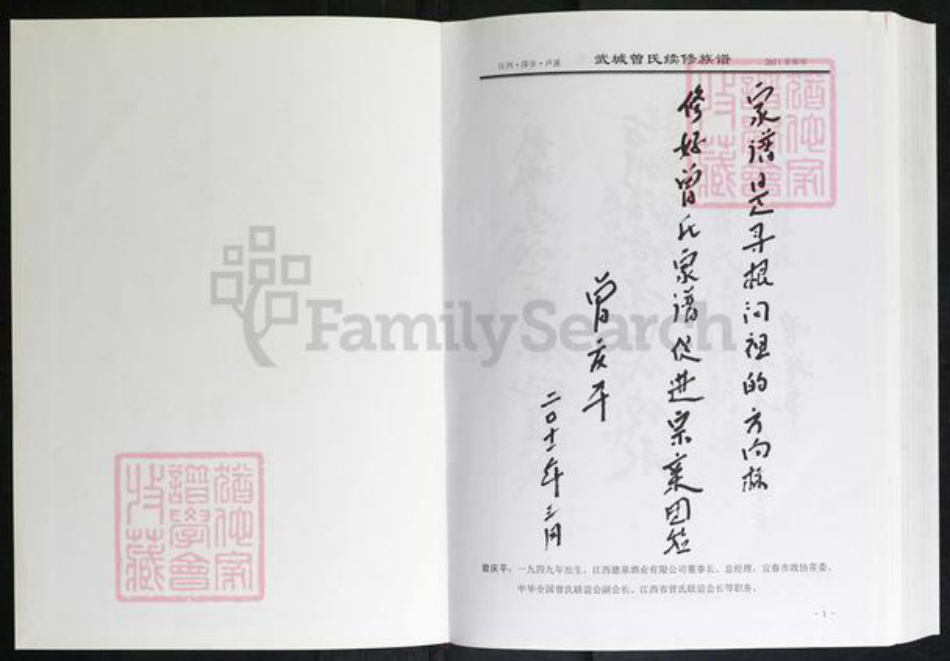 江西·萍乡·芦溪
武城曾氏续修族谱
2011年新修
家谱是寻根问祖的方向标
修好曾氏家谱促进宗亲团结
曾庆平
二〇十一年三月
曾庆平：一九四九年出生，江西德泉酒业有限公司董事长、总经理，宜春市政协常委、
中华全国曾氏联谊会副会长、江西省曾氏联谊会长等职务。
-1-
FamilySearch
猶他家
譜學會
收藏
猶他家
譜學會
收藏